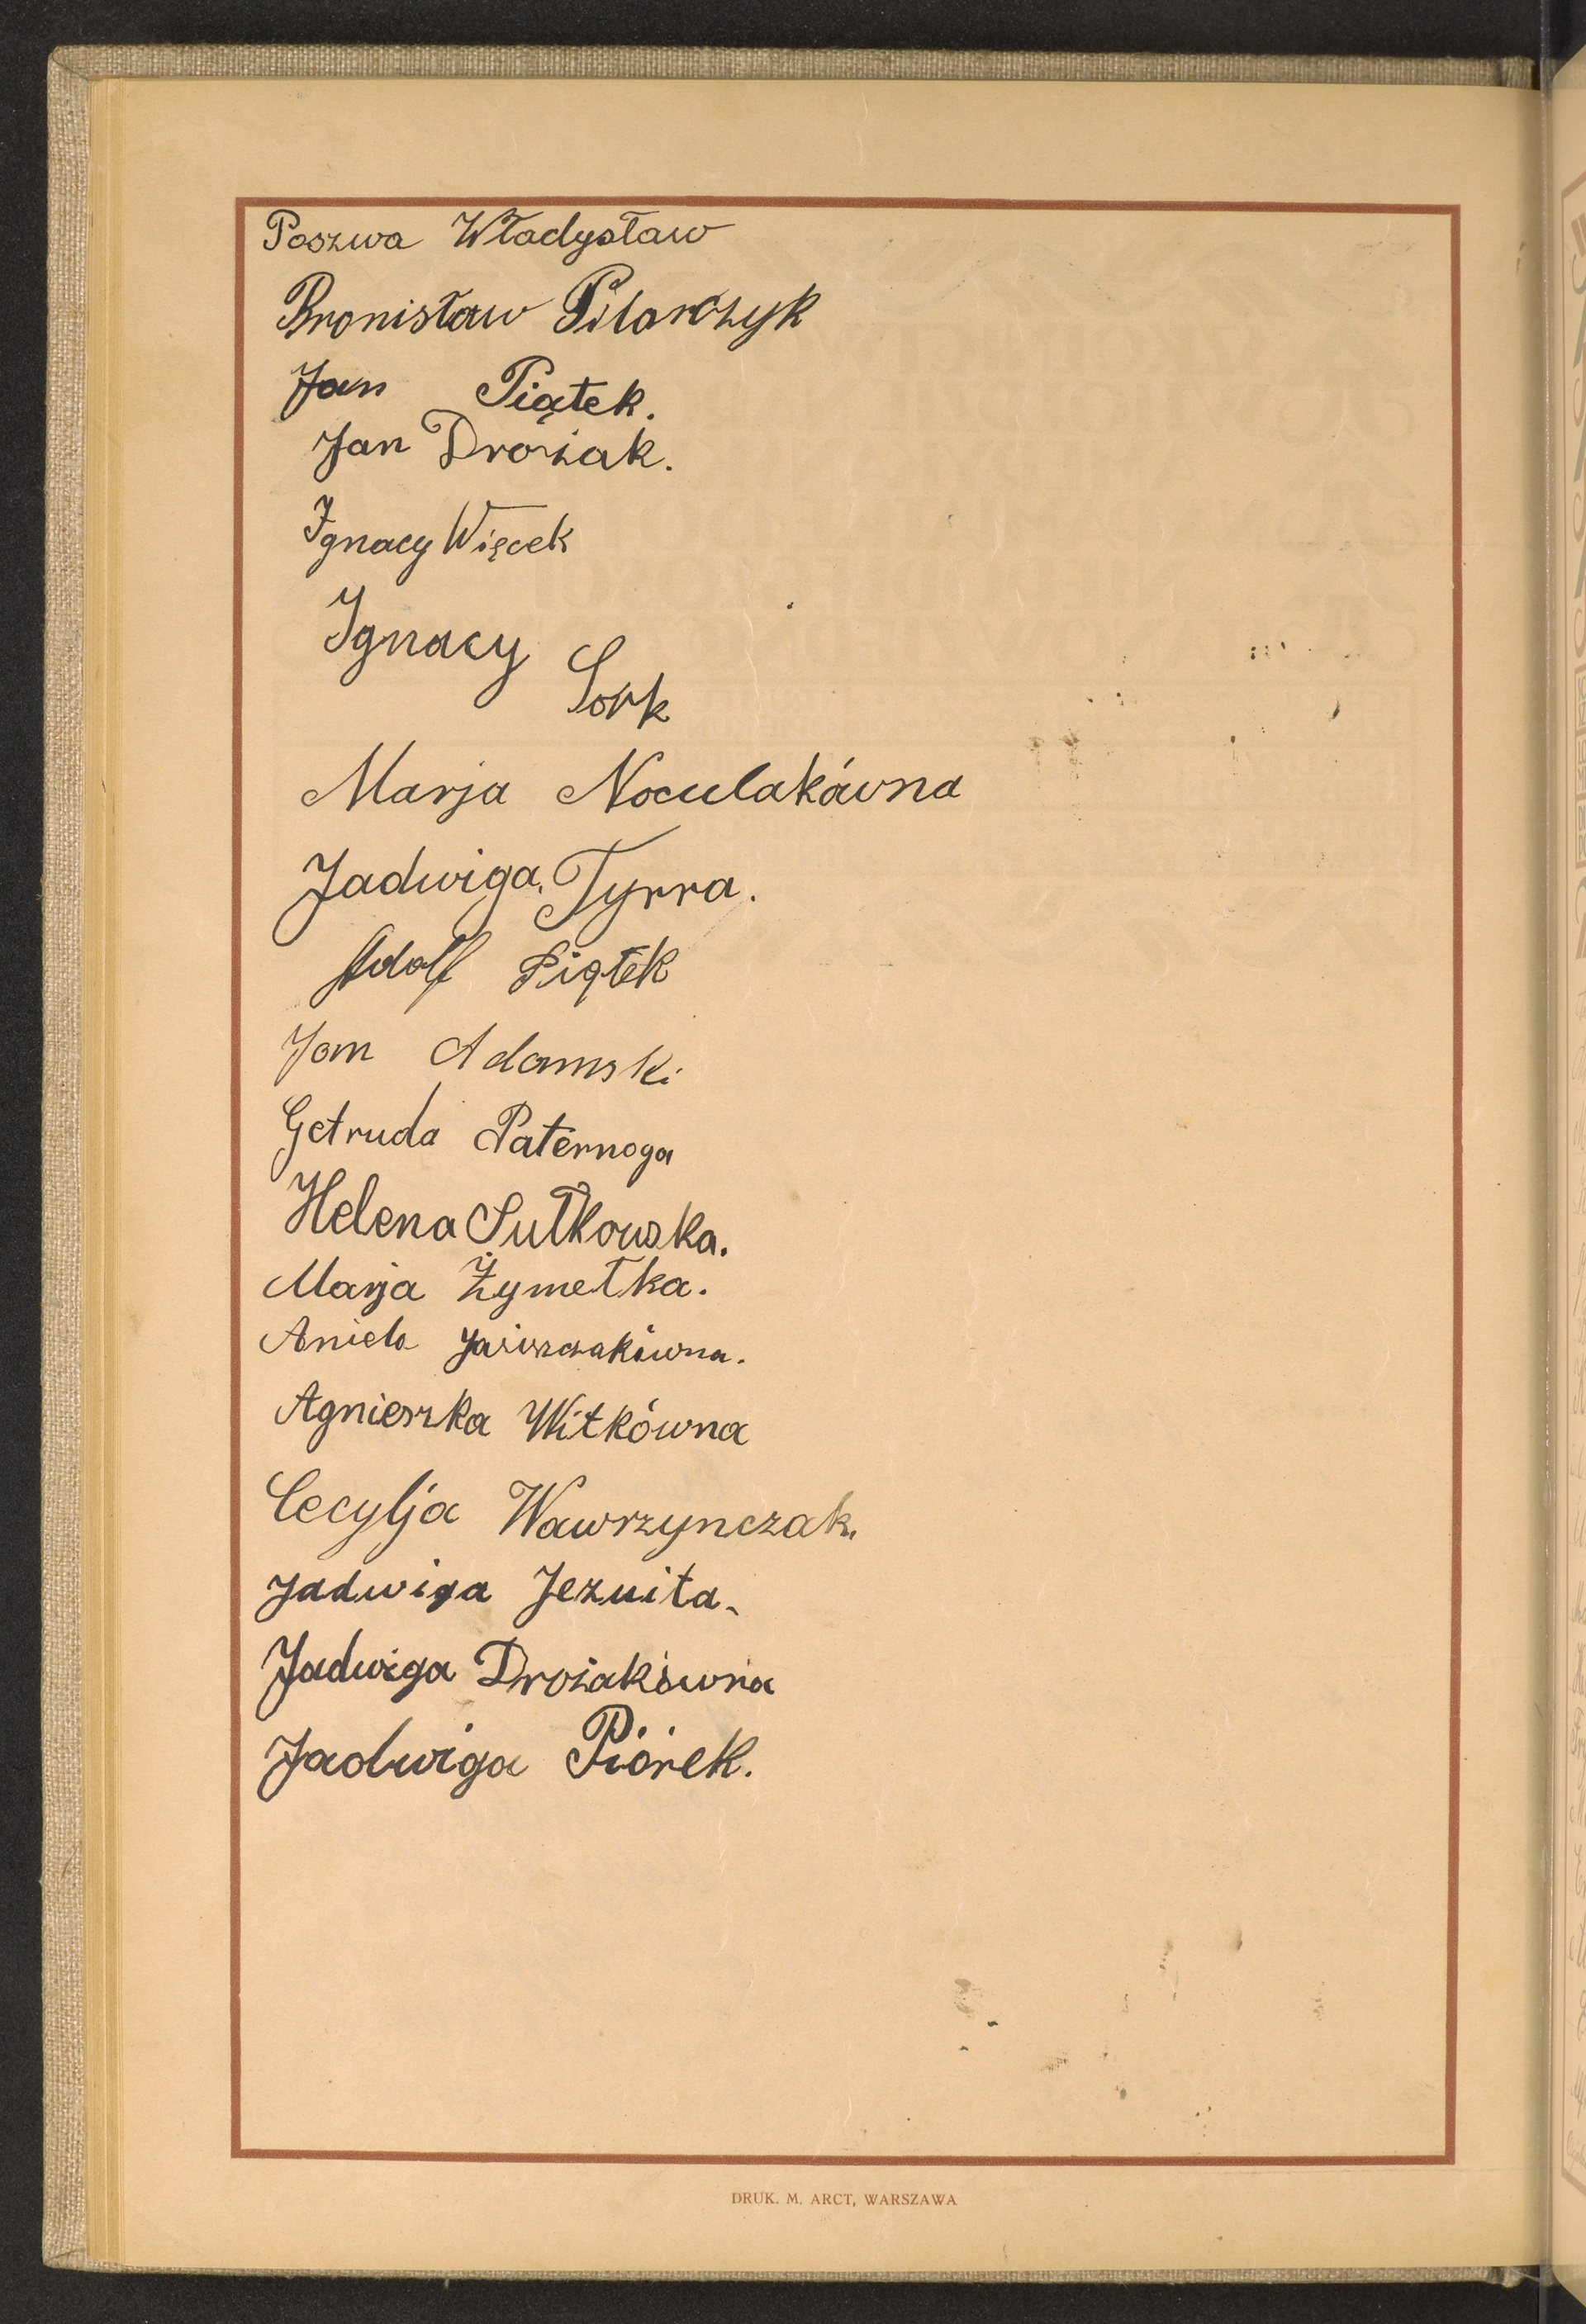 Poszwa Władysław
Bronisław Pilarczyk
Jan Piątek.
Jan Drożak.
Ignacy Więcek
Ignacy
Sork
Marja Noculakówna
Jadwiga Tyrra.
Adolf Piątek
Jan Adamski
Getruda Paternoga
Helena Sułkowska.
Marja Żymełka.
Aniela
Agnieszka Witkówna
Cecylja Wawrzynczak.
Jadwiga Jezuita.
Jadwiga Drożakówna
Jadwiga Piórek.
DRUK. M. ARCT, WARSZAWA